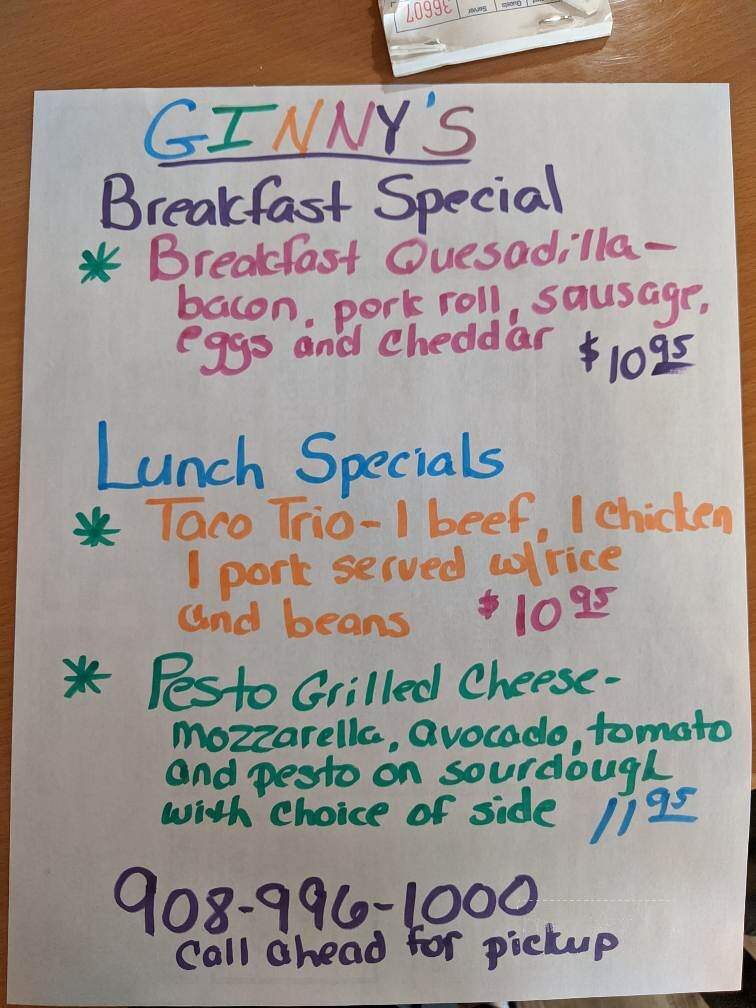 36607
Server
Guests
GINNY'S
Breakfast Special
* Breakfast Quesadilla-
bacon, pork roll, sausage,
eggs and cheddar $10 95
Lunch Specials
* Taco Trio-1 beef, 1 chicken
1 pork served w/rice
and beans $10 95
* Pesto Grilled Cheese-
mozzarella, avocado, tomato
and pesto on sourdough
with choice of side 11 95
908-996-1000
call ahead for pickup